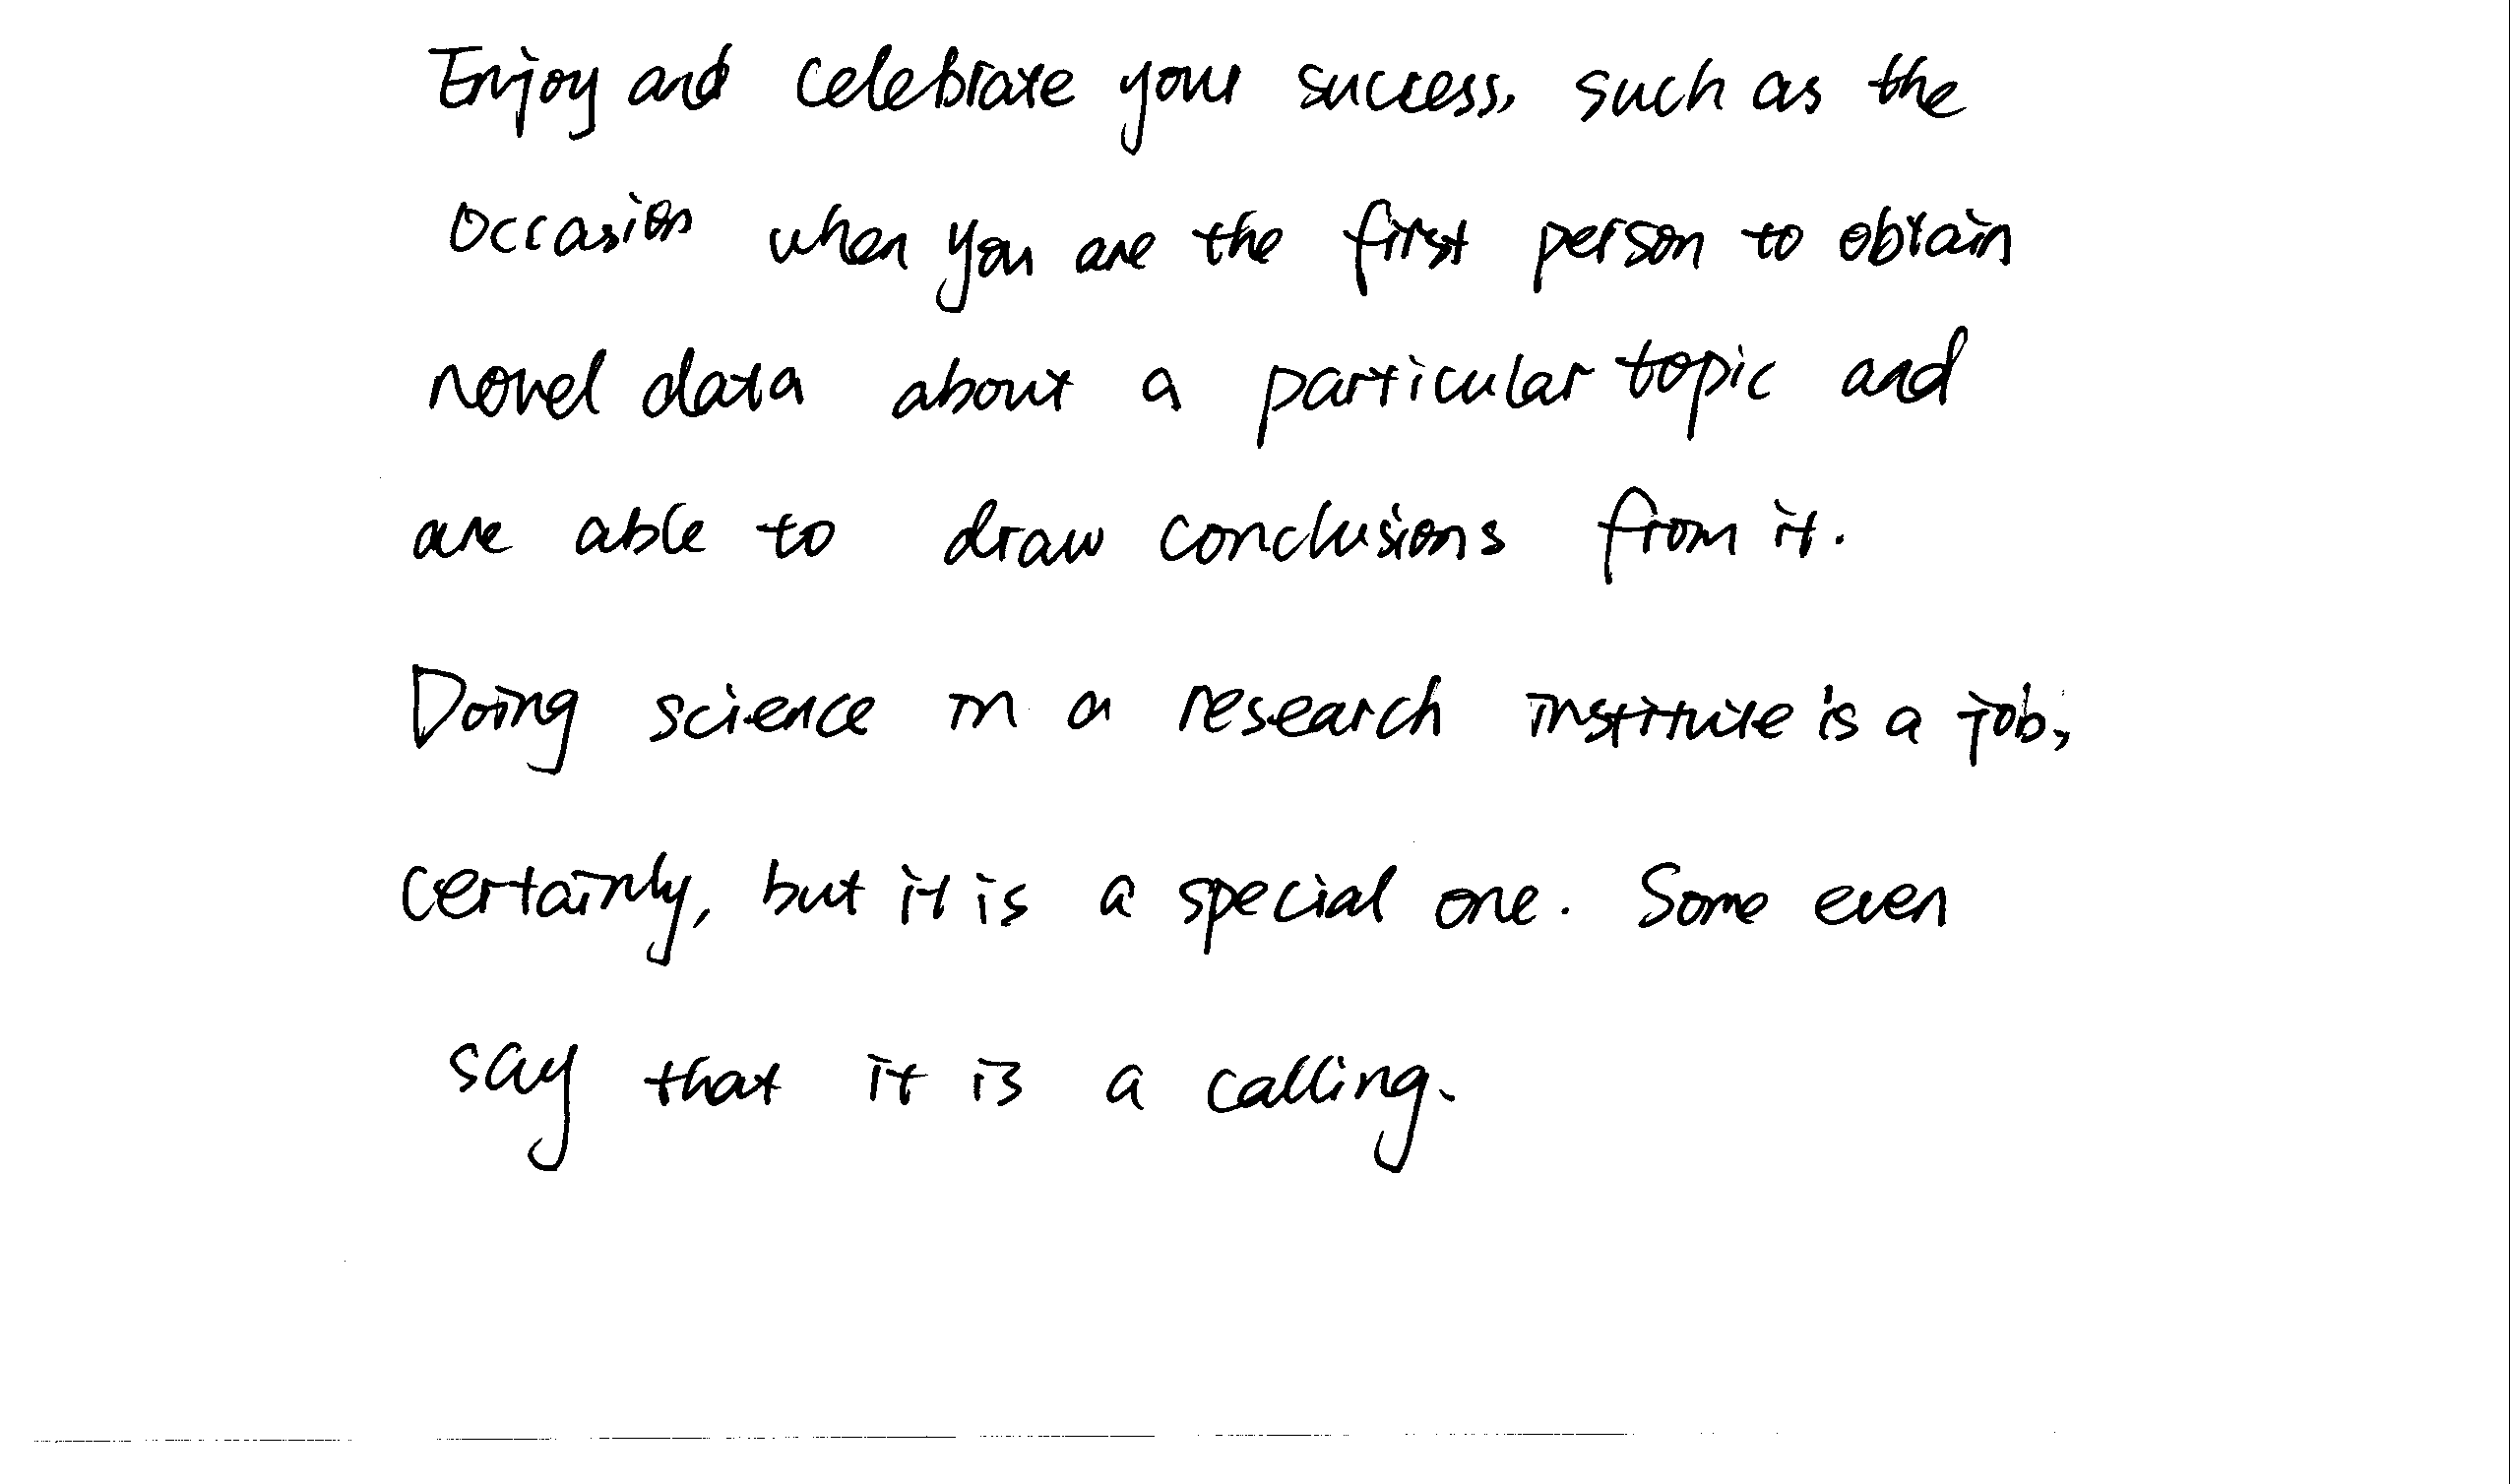 Enjoy and celebrate your success, such as the
occasion when you are the first person to obtain
novel data about a particular topic and
are able to draw conclusions from it.
Doing science in a research institute is a job,
certainly, but it is a special one. Some even
say that it is a calling.